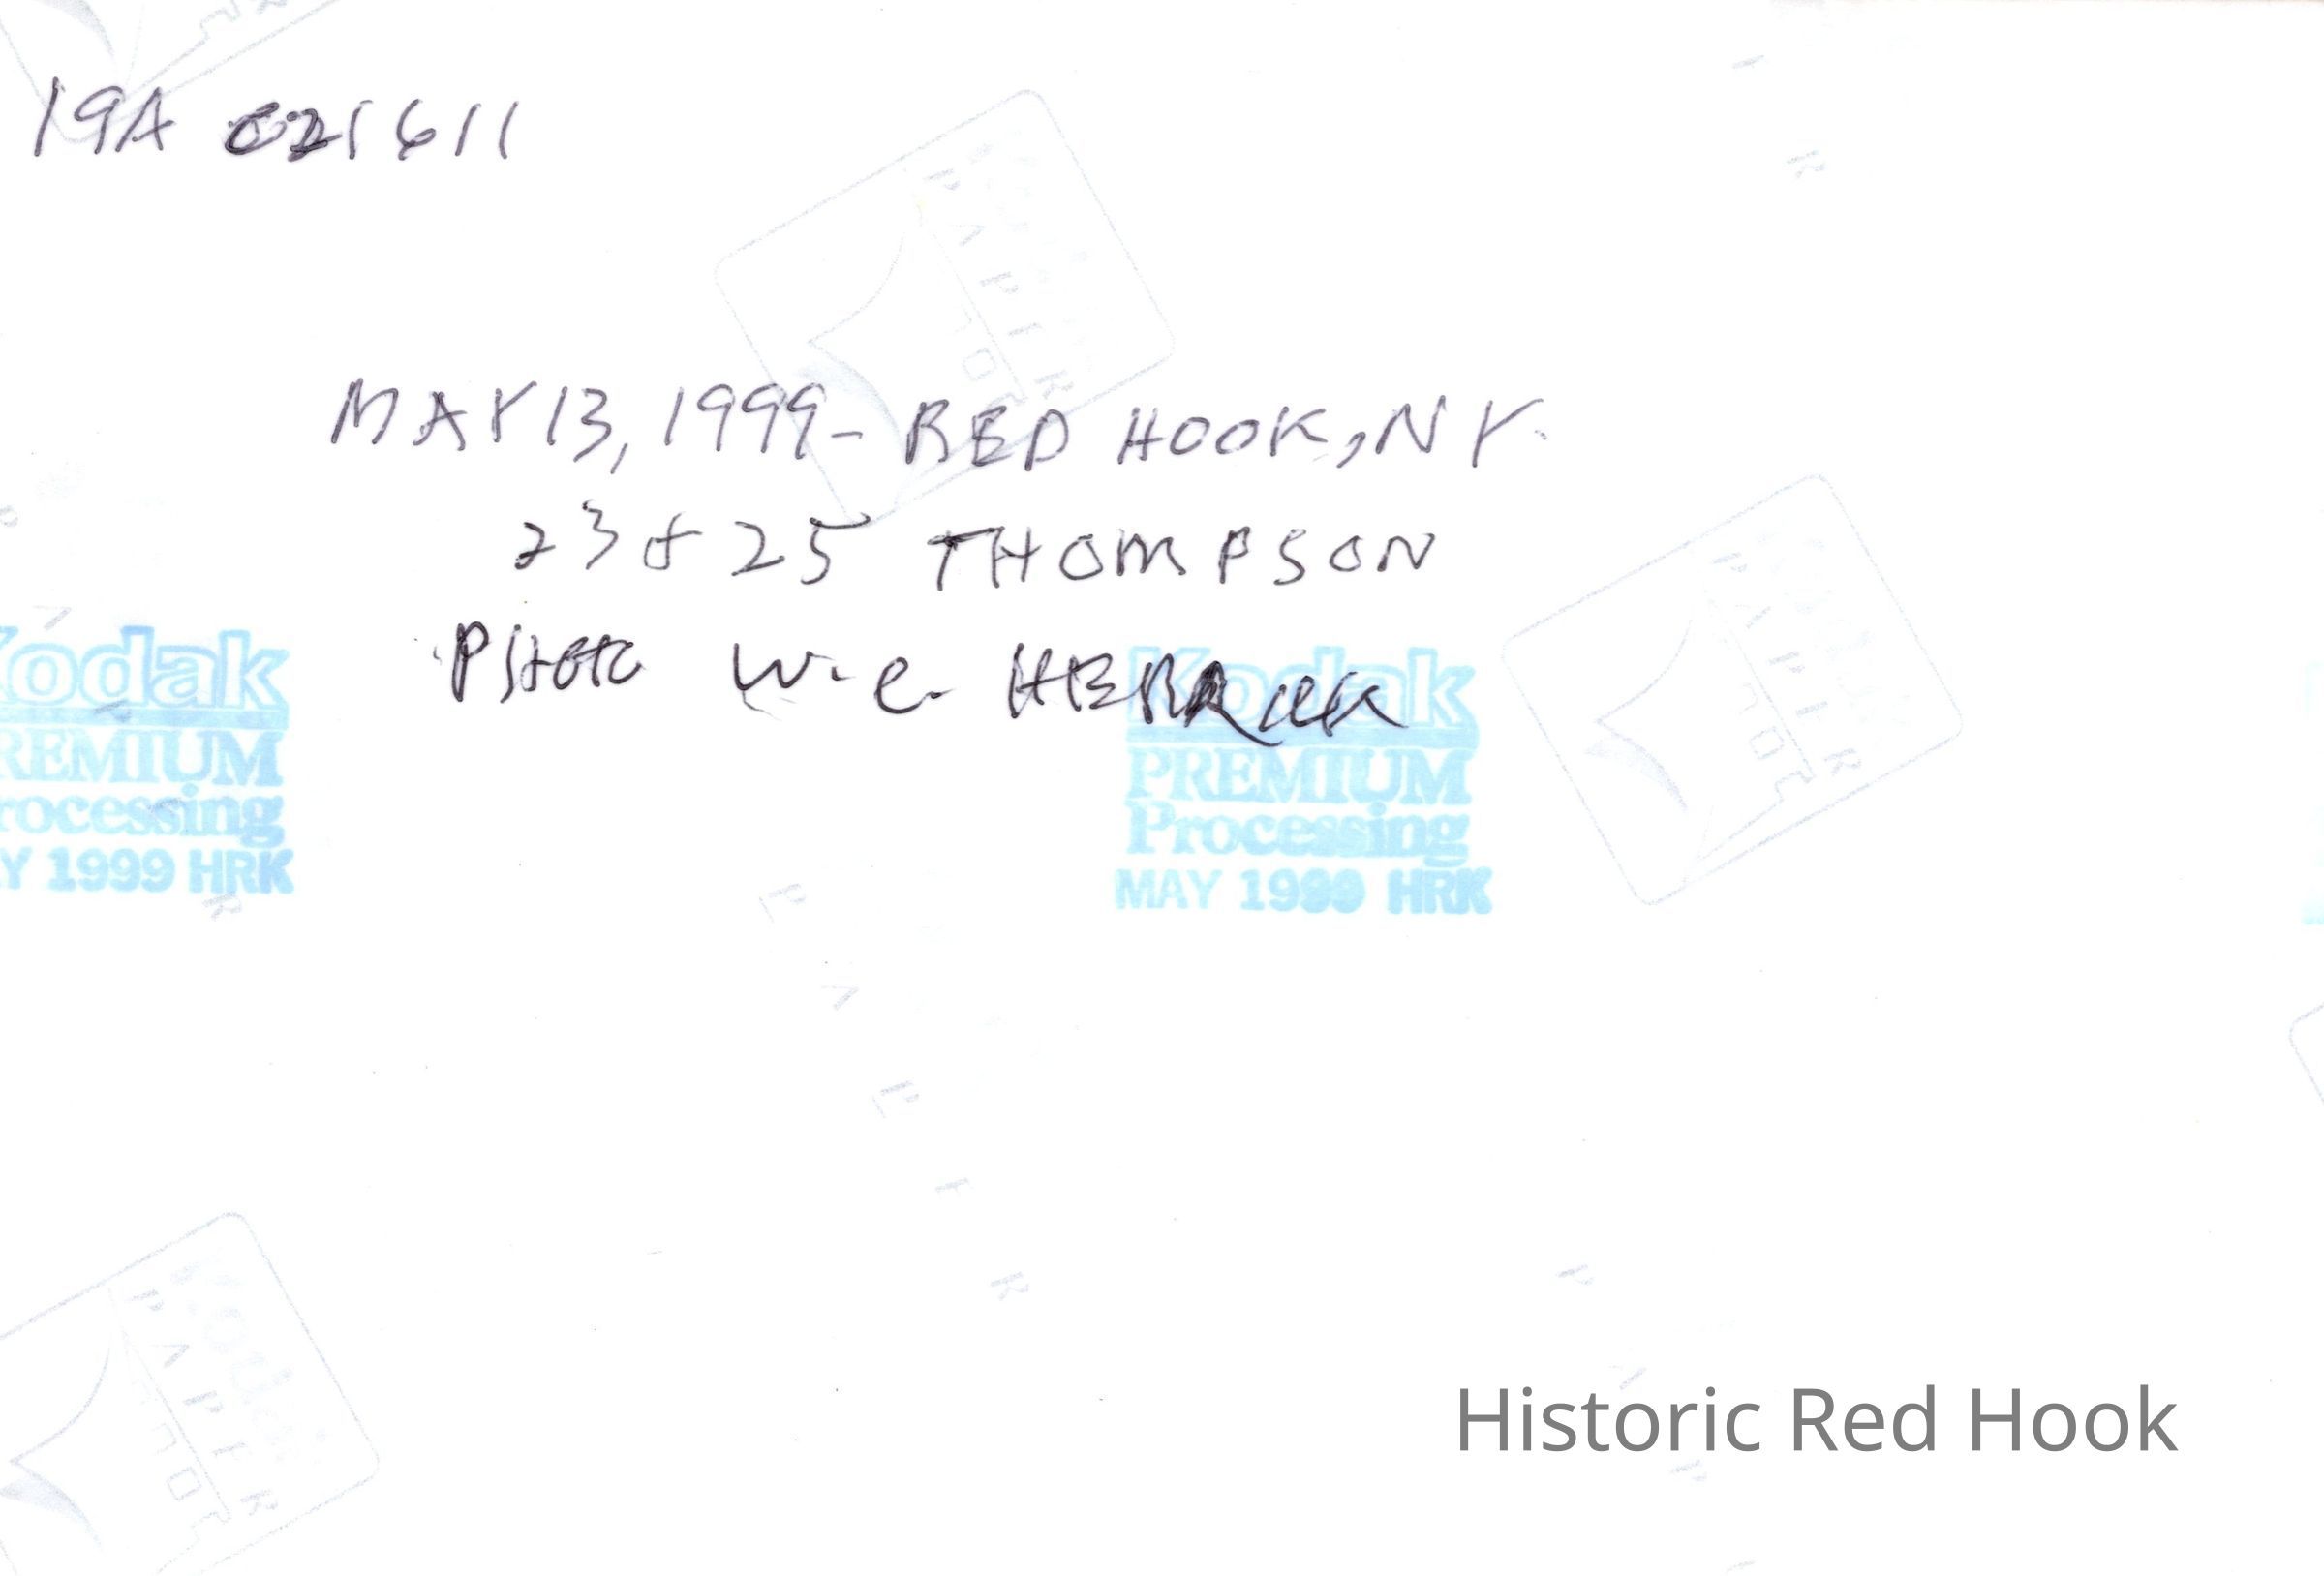 19A 021611
MAY 13, 1999 - RED HOOK, NY.
23 & 25 THOMPSON
PHOTO W. C. HERRICK
Kodak
PREMIUM
Processing
MAY 1999 HRK
Kodak
PREMIUM
Processing
MAY 1999 HRK
Historic Red Hook